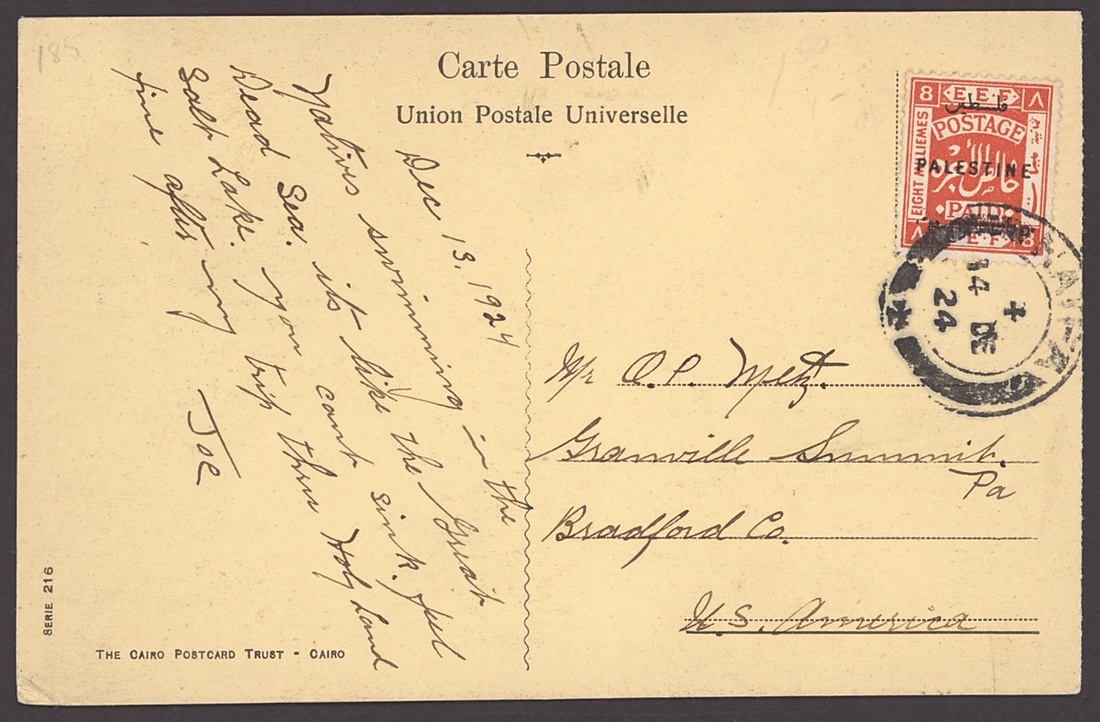 185
Carte Postale
Union Postale Universelle
Dec 13. 1924
Natives swimming in the
Dead Sea. its like the Great
Salt Lake. you cant sink. feel
fine after my trip thru Holy Land
Joe
8 E.E.F ٨
فلسطين
POSTAGE
EIGHT MILLIEMES
PALESTINE
خالص الأجرة
PAID
٨ E.E.F 8
HAIFA
14 DE
24
Mr O.P. Metz.
Granville Summit.
Pa
Bradford Co.
U.S. America
SERIE 216
THE CAIRO POSTCARD TRUST - CAIRO